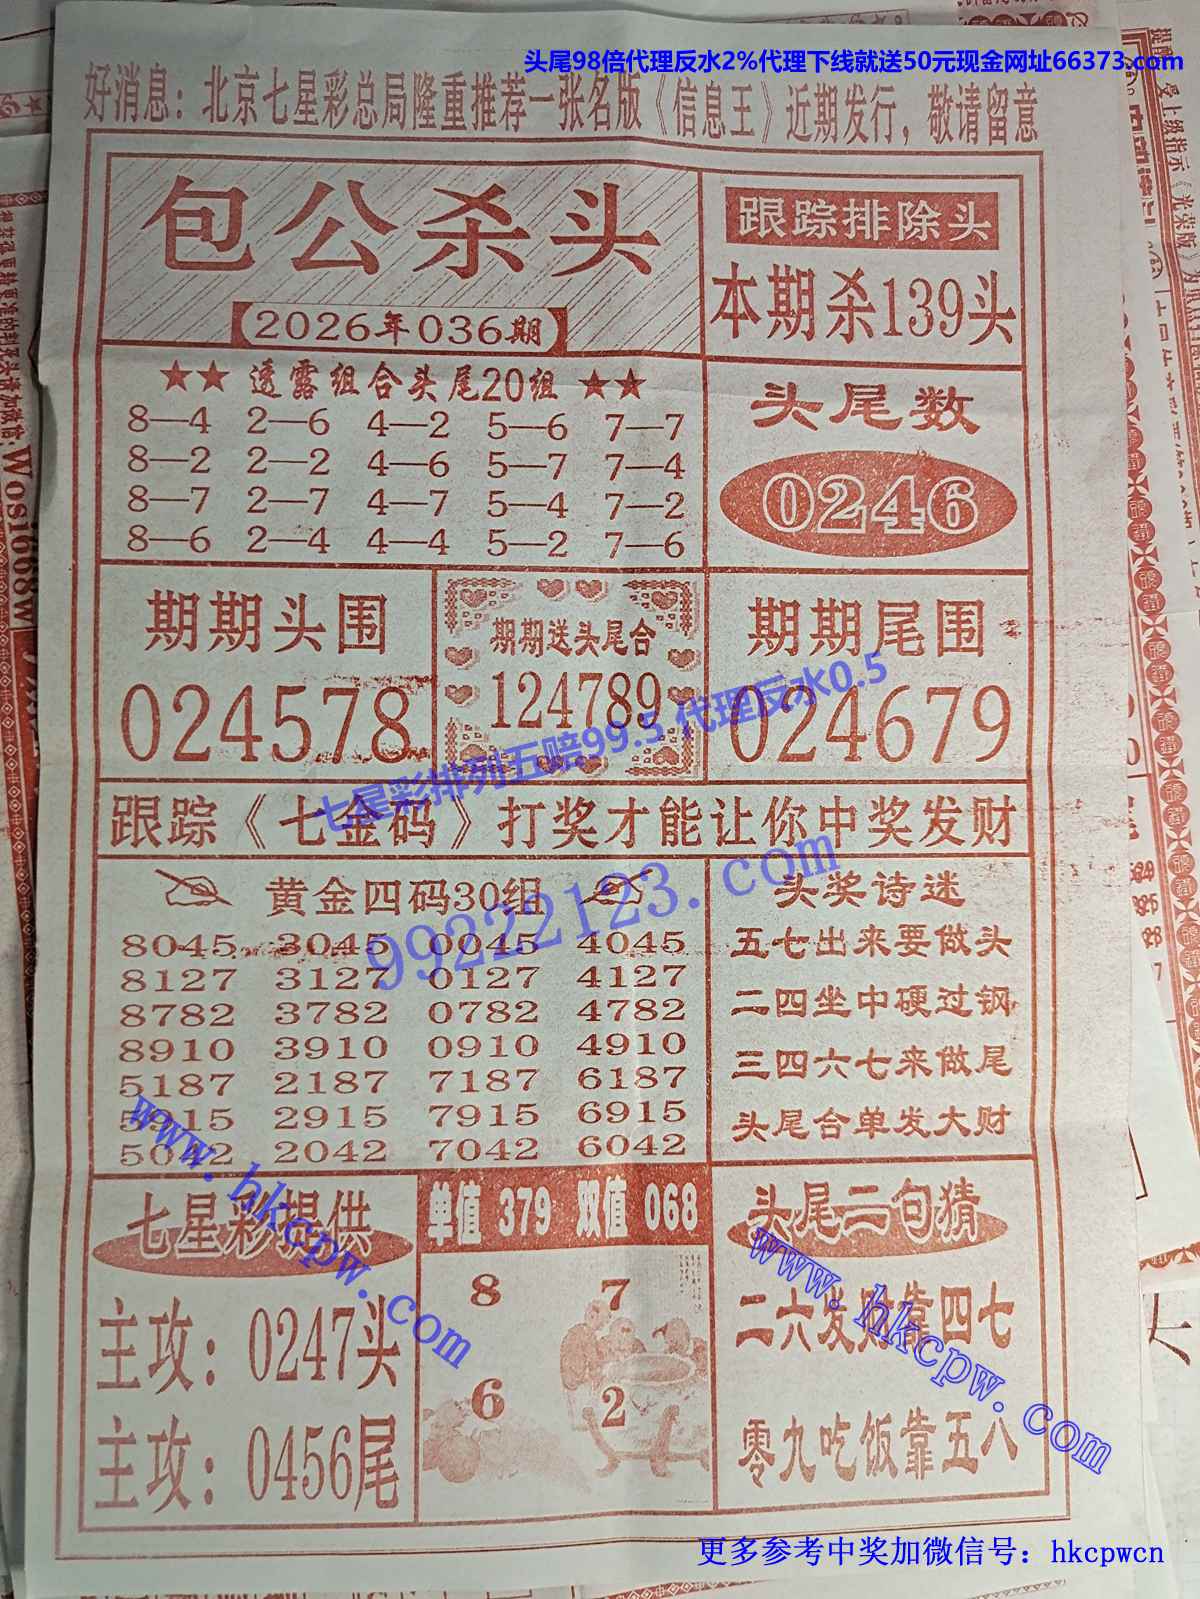 头尾98倍代理反水2%代理下线就送50元现金网址66373.com
好消息：北京七星彩总局隆重推荐一张名版《信息王》近期发行，敬请留意
包公杀头
【2026年036期】
跟踪排除头
本期杀139头
★★ 透露组合头尾20组 ★★
8—4 2—6 4—2 5—6 7—7
8—2 2—2 4—6 5—7 7—4
8—7 2—7 4—7 5—4 7—2
8—6 2—4 4—4 5—2 7—6
头尾数
0246
期期头围
024578
期期送头尾合
124789
期期尾围
024679
七星彩排列五赔99.5 代理反水0.5
跟踪《七金码》打奖才能让你中奖发财
99222123.com
黄金四码30组
8045 3045 0045 4045
8127 3127 0127 4127
8782 3782 0782 4782
8910 3910 0910 4910
5187 2187 7187 6187
5915 2915 7915 6915
5042 2042 7042 6042
头奖诗迷
五七出来要做头
二四坐中硬过钢
三四六七来做尾
头尾合单发大财
www.hkcpw.com
七星彩提供
主攻：0247头
主攻：0456尾
单值 379 双值 068
8 7
6 2
头尾二句猜
二六发财靠四七
零九吃饭靠五八
www.hkcpw.com
更多参考中奖加微信号：hkcpwcn